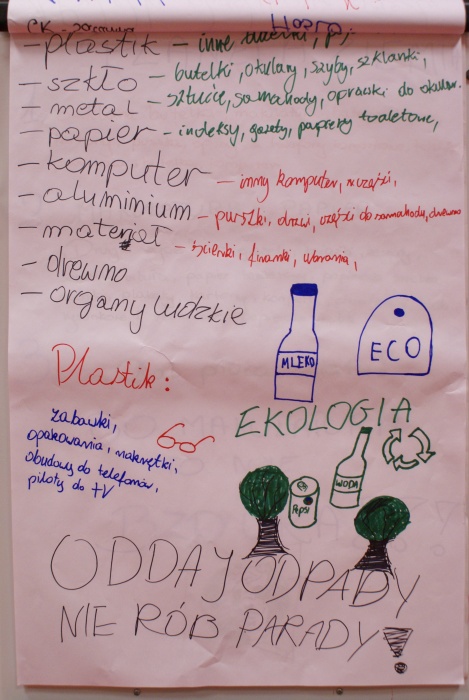 - plastik - inne
- szkło - butelki, okulary, szyby, szklanki,
- metal - sztućce, samochody, oprawki do okularów.
- papier - indeksy, gazety, papiery toaletowe,
- komputer - inny komputer,
- aluminium - puszki, drzwi, części do samochodu, drewno
- materiał - ścierki, firanki, ubrania,
- drewno
- organy ludzkie
MLEKO
ECO
Plastik:
zabawki,
opakowania, nakrętki,
obudowy do telefonów,
piloty do TV
EKOLOGIA
WODA
Pepsi
ODDAJ ODPADY
NIE RÓB PARADY!